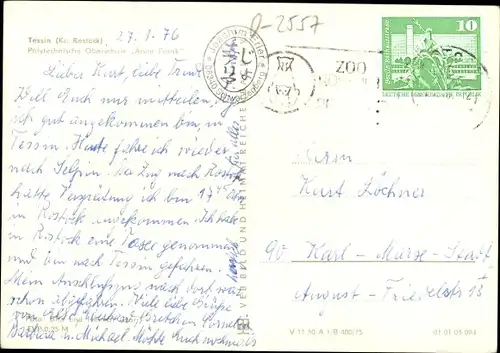 Tessin (Kr. Rostock)
Polytechnische Oberschule „Anne Frank"
27.1.76
D-2557
Lieber Kurt, liebe Trude
Will Euch nur mitteilen,
gut angekommen bin, in
Tessin. Heute fahre ich wieder
nach Selpin. Da Zug nach Rostock
hatte Verspätung ich bin 17 45 Uhr
in Rostock angekommen. Ich habe
in Rostock eine Taxe genommen
und bin nach Tessin gefahren.
Mein Anschlußzug nach dort war
schon abgefahren. Viele liebe Grüße
von Gretchen Cornelia
Barbara u. Michael. Möchte Euch nochmals
für alles
VERE BILD UND HEIMAT REICHE
EVP 0,25 M
V 11 50 A 1/B 400/75
01 01 05 094
ZOO
10
DEUTSCHE DEMOKRATISCHE REPUBLIK
Herrn
Kurt Zöchner
90 Karl-Marx-Stadt
August-Friedel Str 13